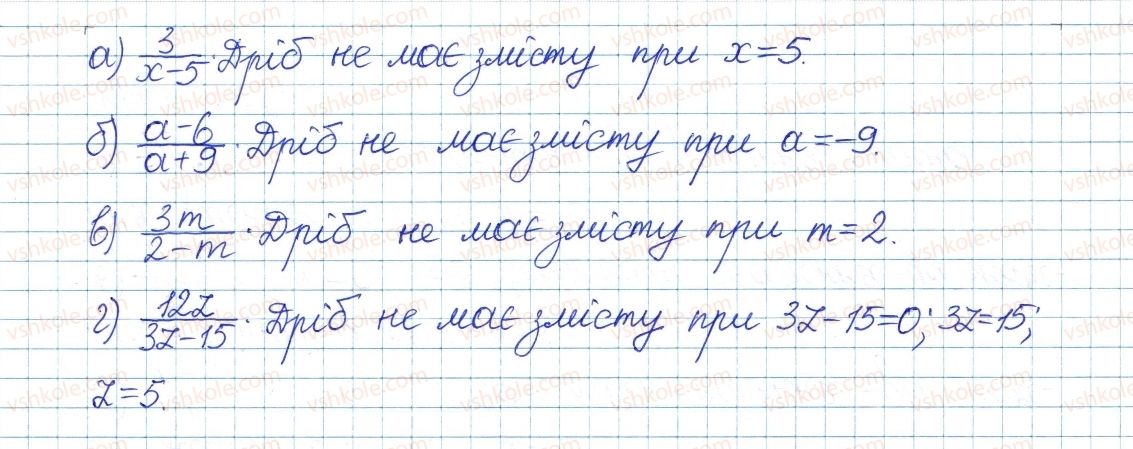 а) 3/(x-5). Дріб не має змісту при x=5.
б) (a-6)/(a+9). Дріб не має змісту при a=-9.
в) 3m/(2-m). Дріб не має змісту при m=2.
г) 12z/(3z-15). Дріб не має змісту при 3z-15=0; 3z=15;
z=5.